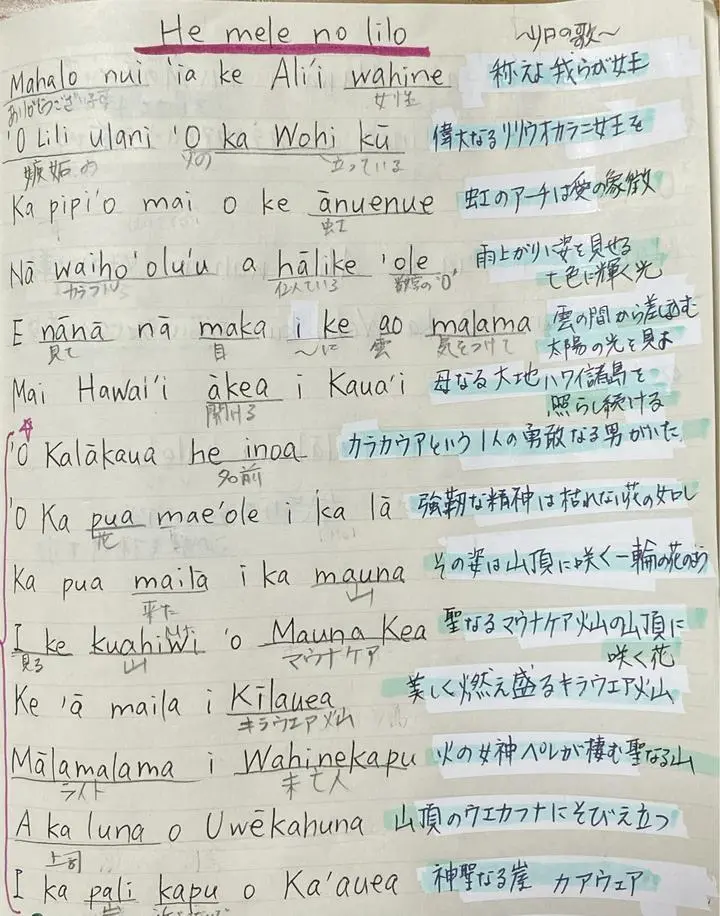 He mele no lilo ～リロの歌～
Mahalo nui 'ia ke Ali'i wahine 称えよ我らが女王
ありがとうございます 女性
'O Lili ulani 'O ka Wohi kū 偉大なるリリウオカラニ女王を
嫉妬の 火の 立っている
Ka pipi'o mai o ke ānuenue 虹のアーチは愛の象徴
虹
Nā waiho'olu'u a hālike 'ole 雨上がりに姿を見せる
七色に輝く光
カラフル 似ている 数字の"0"
E nānā nā maka i ke ao malama 雲の間から差し込む
太陽の光を見よ
見て 目 ～に 雲 気をつけて
Mai Hawai'i ākea i Kaua'i 母なる大地ハワイ諸島を
照らし続ける
開ける
'O Kalākaua he inoa カラカウアという1人の勇敢なる男がいた
名前
'O Ka pua mae'ole i ka lā 強靭な精神は枯れない花の如し
花
Ka pua maila i ka mauna その姿は山頂に咲く一輪の花のよう
来た 山
I ke kuahiwi 'o Mauna Kea 聖なるマウナケア火山の山頂に
咲く花
見る 山 マウナケア
Ke 'ā maila i Kīlauea 美しく燃え盛るキラウエア火山
キラウエア火山
Mālamalama i Wahinekapu 火の女神ペレが棲む聖なる山
ライト 未亡人
A ka luna o Uwēkahuna 山頂のウエカフナにそびえ立つ
上司
I ka pali kapu o Ka'auea 神聖なる崖 カアウェア
崖